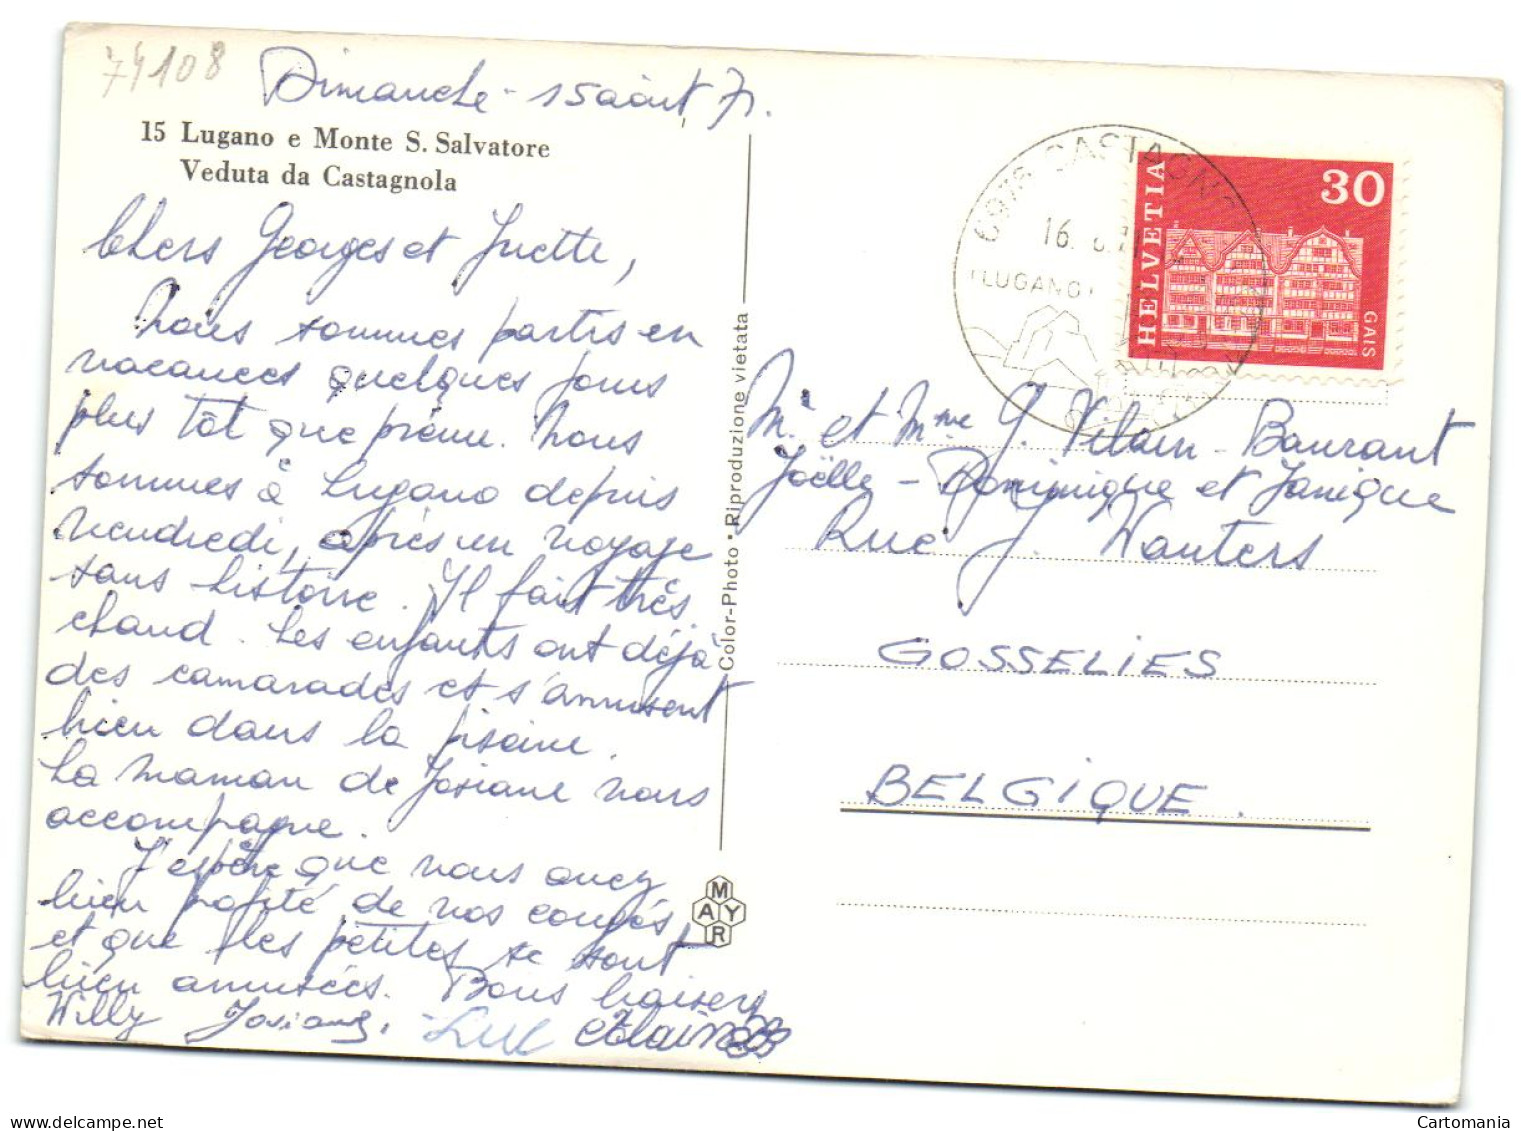 74108
Dimanche - 15 août 71.
15 Lugano e Monte S. Salvatore
Veduta da Castagnola
Chers Georges et Yvette,
Nous sommes partis en
vacances quelques jours
plus tôt que prévu. Nous
sommes à Lugano depuis
vendredi, après un voyage
sans histoire. Il fait très
chaud. Les enfants ont déjà
des camarades et s'amusent
bien dans la piscine.
La maman de Josiane nous
accompagne.
J'espère que vous avez
bien profité de vos congés
et que les petites se sont
bien amusées. Bons baisers
Willy Josiane, Luc
Color-Photo • Riproduzione vietata
MAYR
6976 CASTAGNO
16. 8.71
(LUGANO)
HELVETIA
30
GAIS
Mr et Mme G. Vilain - Baurant
Joëlle - Dominique et Janique
Rue J. Wauters
GOSSELIES
BELGIQUE.
Cartomania